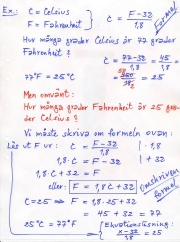 Ex.: C = Celsius
F = Fahrenheit
C = F-32 / 1,8
Formel
Hur många grader Celsius är 77 grader
Fahrenheit?
C = 77-32 / 1,8 = 45 / 1,8
77°F = 25°C
= 25
Men omvänt:
Hur många grader Fahrenheit är 25 grader
Vi måste skriva om formeln ovan:
Lös ut F ur:
C = F-32 / 1,8
1,8·C = F-32
1,8·C + 32 = F
eller: F = 1,8C + 32
Omskriven formel
C=25 ⇒ F = 1,8·25 + 32
= 45 + 32 = 77
25°C = 77°F
(Ekvationslösning:
x-32 / 1,8 = 25)